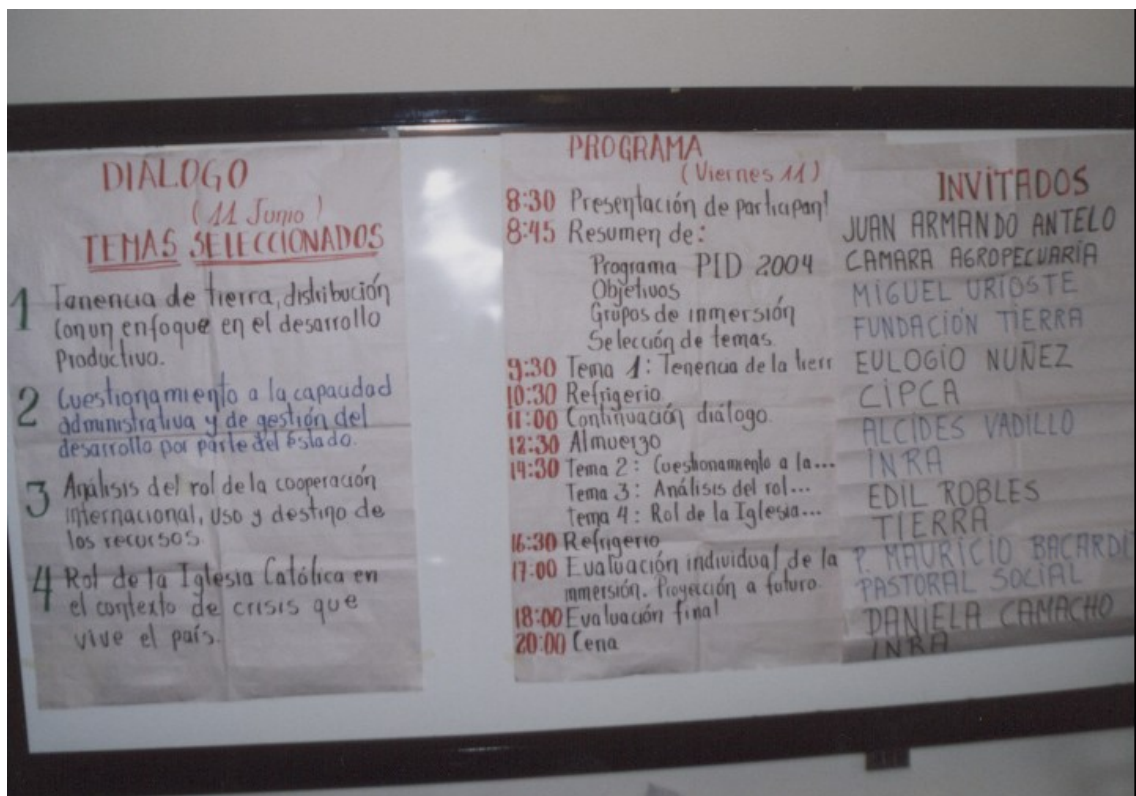 DIÁLOGO
(11 Junio)
TEMAS SELECCIONADOS
1 Tanencia de tierra, distribución
con un enfoque en el desarrollo
Productivo.
2 Cuestionamiento a la capacidad
administrativa y de gestión del
desarrollo por parte del estado.
3 Análisis del rol de la cooperación
internacional, uso y destino de
los recursos
4 Rol de la Iglesia Católica en
el contexto de crisis que
vive el país.
PROGRAMA
(Viernes 11)
8:30 Presentación de participant
8:45 Resumen de:
Programa PID 2004
Objetivos
Grupos de inmersión
Selección de temas
9:30 Tema 1: Tenencia de la tierr
10:30 Refrigerio
11:00 Continuación diálogo.
12:30 Almuerzo
14:30 Tema 2: Cuestionamiento a la...
Tema 3: Análisis del rol...
Tema 4: Rol de la Iglesia...
16:30 Refrigerio
17:00 Evaluación individual de la
inmersión. Proyección a futuro.
18:00 Evaluación final
20:00 Cena
INVITADOS
JUAN ARMANDO ANTELO
CAMARA AGROPECUARIA
MIGUEL URIOSTE
FUNDACIÓN TIERRA
EULOGIO NUÑEZ
CIPCA
ALCIDES VADILLO
INRA
EDIL ROBLES
TIERRA
P. MAURICIO BACARDIT
PASTORAL SOCIAL
DANIELA CAMACHO
INRA